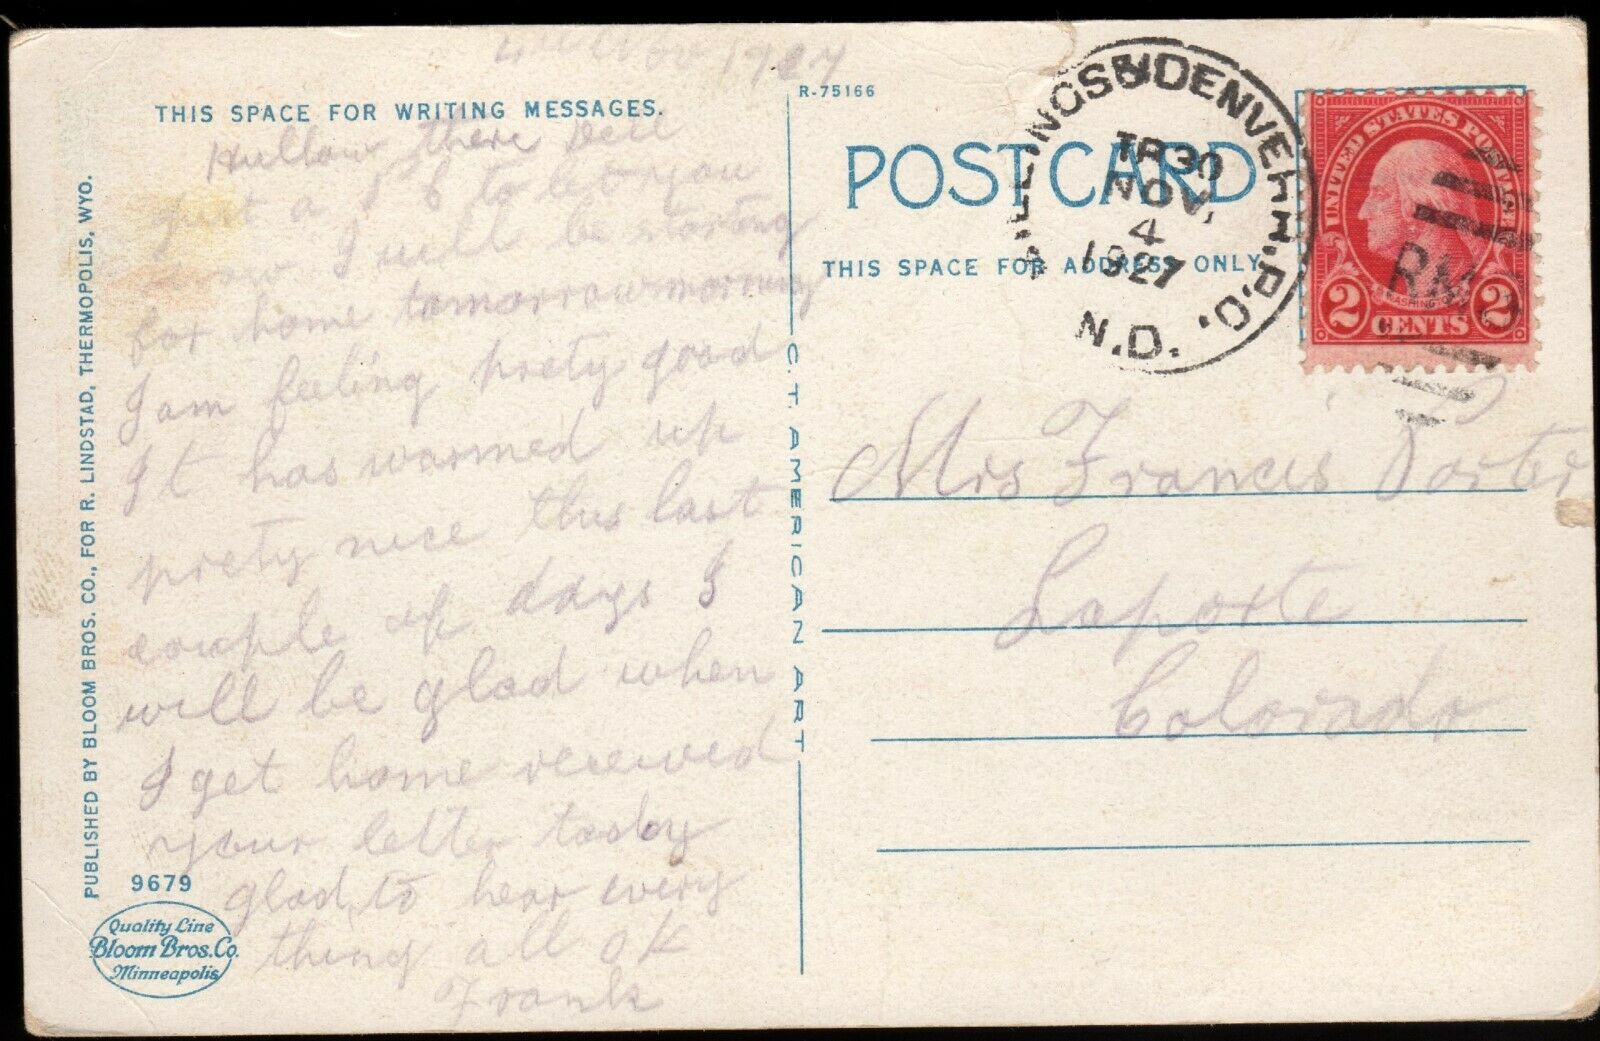 Nov 1927
THIS SPACE FOR WRITING MESSAGES.
Hullow there Dell
just a P C to let you
know I will be starting
for home tomorrow morning
I am feeling prety good
It has warmed up
prety nice this last
couple of days I
will be glad when
I get home received
your letter today
glad to hear every
thing all ok
Frank
PUBLISHED BY BLOOM BROS. CO., FOR R. LINDSTAD, THERMOPOLIS, WYO.
9679
Quality Line
Bloom Bros. Co.
Minneapolis
C.T. AMERICAN ART
R-75166
POST CARD
THIS SPACE FOR ADDRESS ONLY
BILLINGS & DENVER R.P.O.
TR30
NOV.
4
1927
N.D.
UNITED STATES POSTAGE
WASHINGTON
2 CENTS 2
RMS
Mrs Francis Porter
Laporte
Colorado